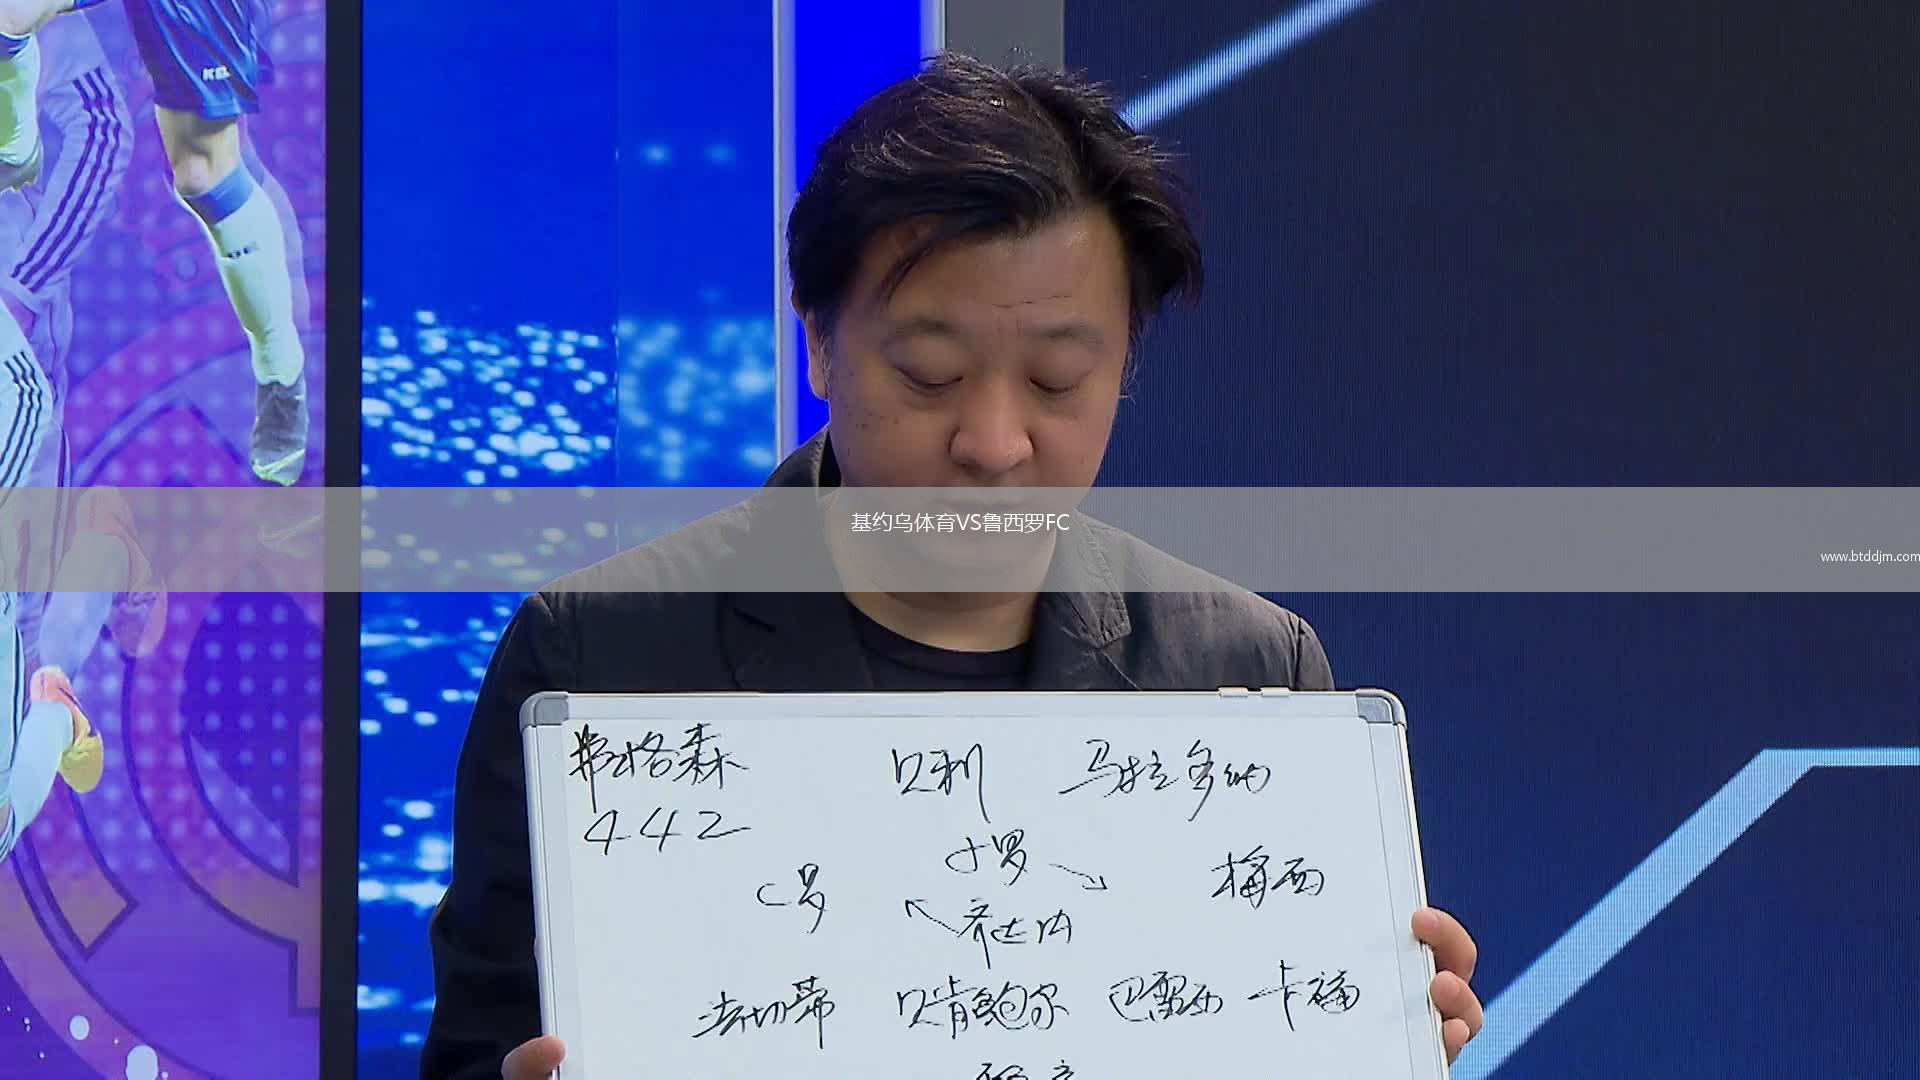 基约乌体育VS鲁西罗FC
www.btddjm.com
弗格森 贝利 马拉多纳
442
小罗
C罗 梅西
齐达内
法切蒂 贝肯鲍尔 巴雷西 卡福